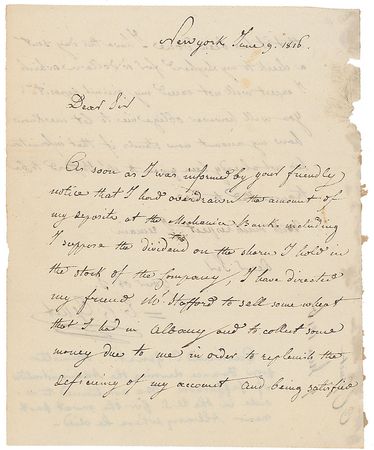 Newyork June 9. 1816.
Dear Sir
As soon as I was informed by your friendly
notice that I had overdrawn the amount of
my deposite at the Mechanics Bank including
I suppose the dividend on the shares I hold in
the stock of the Company, I have directed
my friend Mr. Stafford to sell some wheat
that I had in Albany and to collect some
money due to me in order to replenish the
deficiency of my account and being satisfied